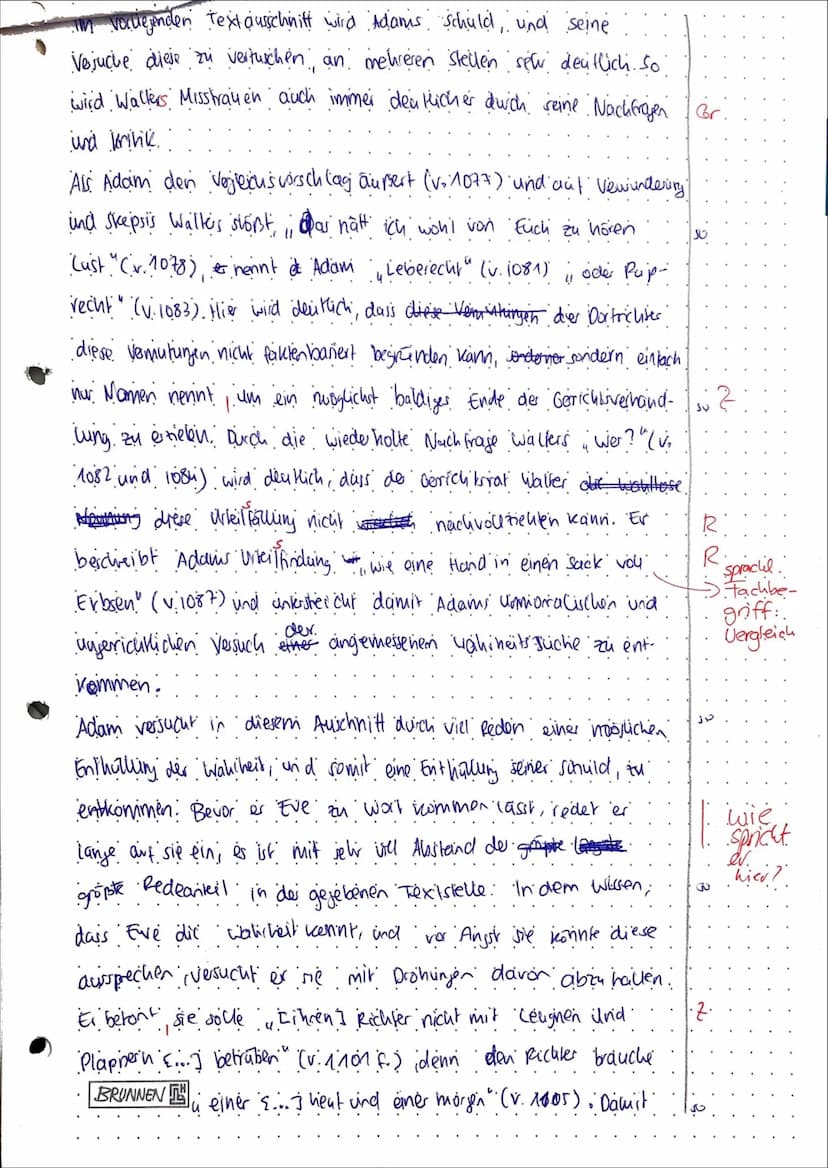 Im vorliegenden Textausschnitt wird Adams Schuld, und seine
Versuche diese zu vertuschen, an mehreren Stellen sehr deutlich. So
wird Walters Misstrauen auch immer deutlicher durch seine Nachfragen Gr
und Kritik.
Als Adam den Vergleichsvorschlag äußert (v. 1077) und auf Verwunderung
und Skepsis Walters stößt, „Das hätt ich wohl von Euch zu hören
Lust" (v. 1078), nennt Adam „Leberecht" (v. 1081) „oder Rup-
recht" (v. 1083). Hier wird deutlich, dass diese Vermutungen der Dorfrichter
diese Vermutungen nicht faktenbasiert begründen kann, sondern einfach
nur Namen nennt, um ein möglichst baldiges Ende der Gerichtsverhand- Z
lung zu erzielen. Durch die wiederholte Nachfrage Walters „Wer?" (v.
1082 und 1084) wird deutlich, dass der Gerichtsrat Walter die wahllose
Nennung diese Urteilsfällung nicht nachvollziehen kann. Er R
beschreibt Adams Urteilsfindung „wie eine Hand in einen Sack voll R
sprachl.
Erbsen" (v. 1087) und unterstreicht damit Adams unmoralischen und Fachbe-
griff:
ungerichtlichen Versuch einer der angemessenen Wahrheitssuche zu ent- Vergleich
kommen.
Adam versucht in diesem Auschnitt durch viel Reden einer möglichen
Enthüllung der Wahrheit, und somit eine Enthüllung seiner Schuld, zu
entkommen. Bevor er Eve zu Wort kommen lässt, redet er wie
spricht
lange auf sie ein, es ist mit sehr viel Abstand der größte längste er
hier?
größte Redeanteil in der gegebenen Textstelle. In dem Wissen,
dass Eve die Wahrheit kennt, und vor Angst sie könnte diese
aussprechen, versucht er sie mit Drohungen davon abzuhalten.
Er betont, sie solle „[ihren] Richter nicht mit Leugnen Und Z
Plappern [...] betrüben" (v. 1101 f.), denn den Richter brauche
BRUNNEN einer [...] heut und einer morgen" (v. 1105). Damit